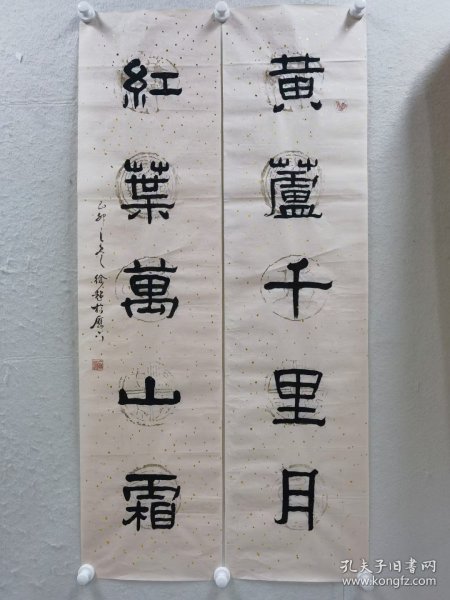 黄蘆千里月
紅葉萬山霜
孔夫子旧书网
www.kongfz.com